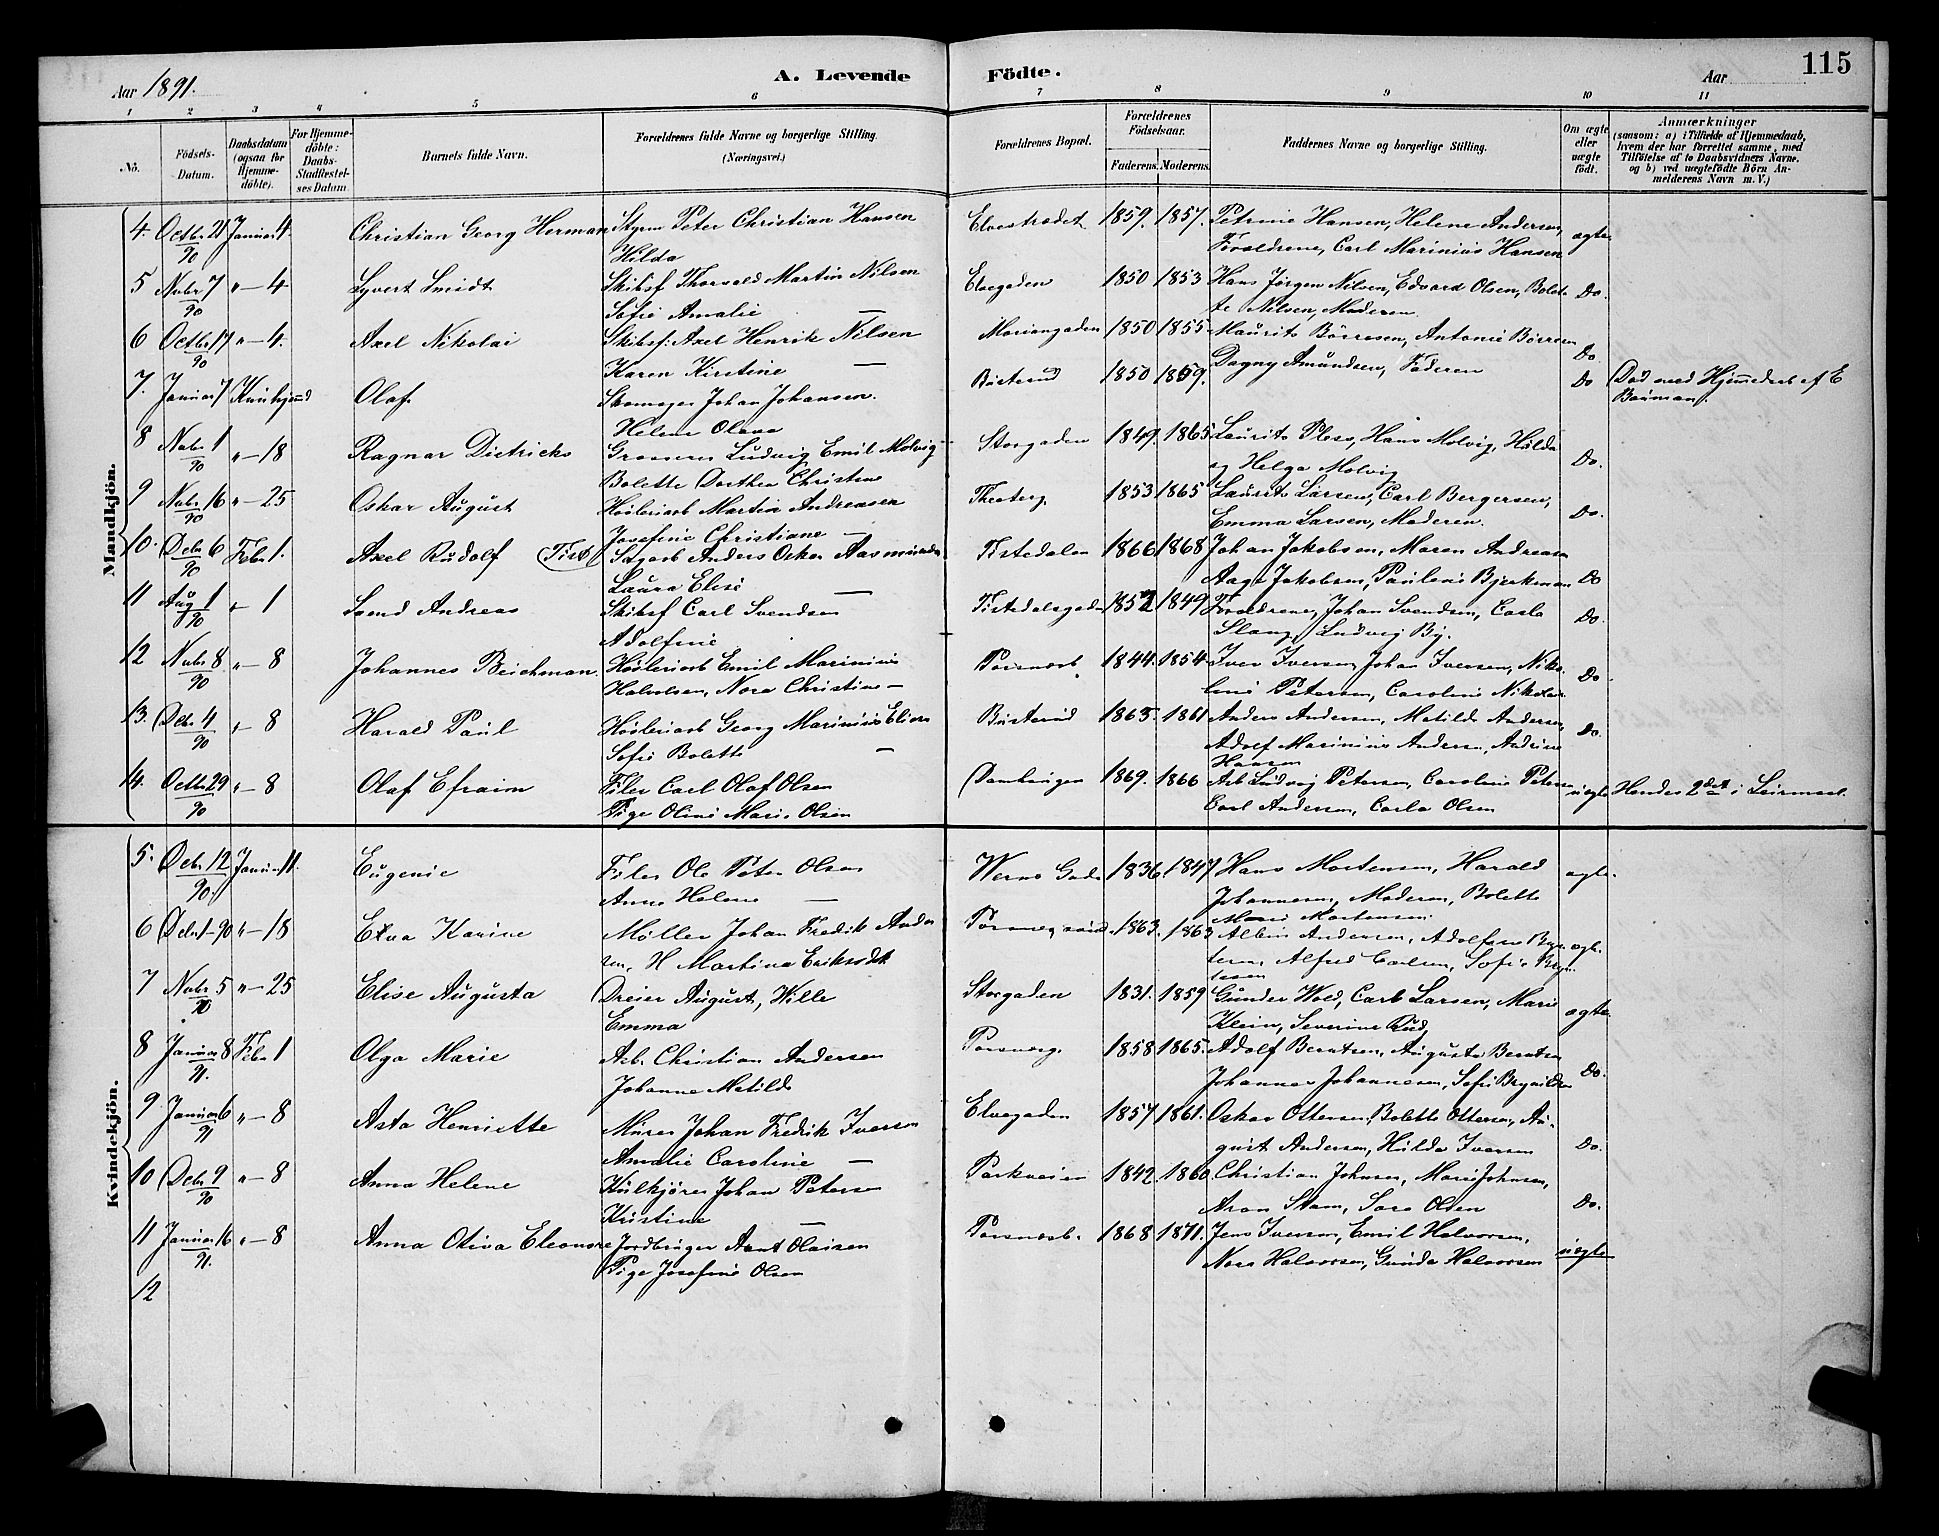 115
Aar 1891.
A. Levende Födte.
Aar
1 2 3 4 5 6 7 8 9 10 11
No.
Födsels-Datum.
Daabsdatum (ogsaa for Hjemme-döbte).
For Hjemme-döbte: Daabs-Stadfæstel-ses Datum
Barnets fulde Navn.
Forældrenes fulde Navne og borgerlige Stilling. (Næringsvei.)
Forældrenes Bopæl.
Forældrenes Födselsaar.
Faderens. Moderens.
Faddernes Navne og borgerlige Stilling.
Om ægte eller uægte født.
Anmærkninger
(saasom: a) i Tilfælde af Hjemmedaab, hvem der har forrettet samme, med Tilföielse af to Daabsvidners Navne. og b) ved uægtefödte Börn An-melderens Navn m. V.)
Mandkjön.
4. Octbr 21 Januar 4. Christian Georg Herman Styrm Peter Christian Hansen Elvestrædet 1859. 1857. Petrine Hansen, Helene Andersen, ægte
90 Hilda Forældrene, Carl Marinius Hansen
5 Novbr 7 " – 4 Syvert Smidt Skibsf Thorvald Martin Nilsen Elvegaden 1850 1853 Hans Jørgen Nilsen, Edvard Olsen, Bolet- Do.
90 Sofie Amalie — te Nilsen, Moderen.
6 Octbr 17 " – 4. Axel Nikolai Skibsf. Axel Henrik Nilsen Mariangaden 1850 1855. Maurits Börresen, Antonie Börresen Do
90 Karen Kirstine — Dagny Amundsen, Faderen
7. Januar 7 Olaf Skomager Johan Johansen. Busterud 1850 1859. Do Død med Hjemmedaab af E
Helene Olava Bauman.
8 Novbr 1 " – 18 Ragnar Dietrichs Grosserer Ludvig Emil Molvig Storgaden 1849. 1865 Laurits Pless, Hans Molvig, Hilda Do.
90 Bolette Dorthea Christine og Helga Molvig
9 Novbr 16 " – 25 Oskar August Høvleriarb Martin Andreasen Theaterg. 1853 1865 Laurits Larsen, Carl Bergersen, Do.
90 Josefine Christiane — Emma Larsen, Moderen.
10. Debr 6 Febr 1. Axel Rudolf (Tist) Sagarb Anders Oskar Aasmundsen Tistedalen 1866 1868 Johan Jakobsen, Maren Andreasen Do
90 Laura Elise — Aage Jakobsen, Pauline Bjerkman
11 Aug 1 " 1 Skibsf Carl Svendsen Tistedalsgaden 1852 1849 Forældrene, Johan Svendsen, Carla Do.
90 Adolfine Slang, Ludvig By.
12 Novbr 8. " – 8 Johannes Beichman Høvleriarb Emil Marinius 1844. 1854. Iver Iversen, Johan Iversen, Niko- Do.
90 Halvorsen, Nora Christine – line Petersen, Caroline
13. Debr 4 " – 8 Harald Paul Høvleriarb Georg Marinius Busterud 1865. 1861 Anders Andersen, Matilde Andersen, Do.
90 Sofie Bolette — Adolf Marinius Andersen, Andrine
Hansen
14. Octbr 29 " – 8 Olaf Efraim Filer Carl Olaf Olsen Damhaugen 1869. 1866 Arb Ludvig Petersen, Caroline Petersen uægte Hendes 2det i Leiermaal.
90 Pige Oline Marie Olsen Carl Andersen, Carla Olsen
Kvindekjön.
5. Debr 12 Januar 11. Eugenie Filer Ole Peter Olsen Werns Gade 1836. 1847 Hans Mortensen, Harald ægte.
90. Anne Helene — Johannesen, Moderen, Bolette
Marie Mortensen.
6 Debr 1–90 " – 18 Elva Karine Møller Johan Fredrik Ander- 1863. 1863 Albin Andersen, Adolfine ægte
sen, H Martine Eriksdt Alfred Carlsen, Sofie
7 Novbr 5 " – 25 Elise Augusta Dreier August, Wille Storgaden 1831. 1859 Gunder Wold, Carl Larsen, Marie ægte.
90 Emma Klein, Severine Rud.
8 Januar 8 Febr 1 Olga Marie Arb. Christian Andersen 1858 1865. Adolf Berntsen, Augusta Berntsen Do.
91. Johanne Matilde Johannes Johannesen, Sofie
9 Januar 6 " – 8 Asta Henriette Murer Johan Fredrik Iversen Elvegaden 1857 1861. Oskar Ottersen, Bolette Ottersen, Au-
91 Amalie Caroline — gust Andersen, Hilda Iversen Do.
10 Debr 9 " – 8 Anna Helene Kulkjører Johan Petersen Parkveien 1842 1860 Christian Johnsen, Marie Johnsen,
90 Kristine — Aron Stam, Sara Olsen Do.
11 Januar 16 " – 8 Anna Otiva Eleonore Jordbruger Arnt Olaisen 1868 1871. Jens Iversen, Emil Halvorsen, uægte
91. Pige Josefine Olsen Nora Halvorsen, Gunda Halvorsen
12